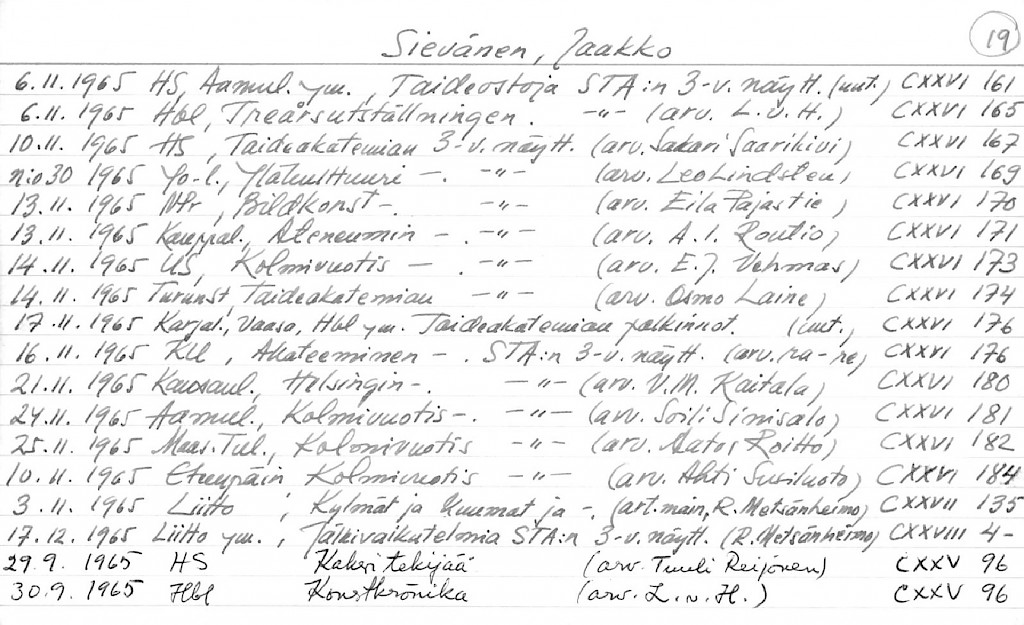 19
Sievänen, Jaakko
6.11.1965 HS, Aamul. ym., Taideostoja STA:n 3-v. näytt. (uut.) CXXVI 161
6.11.1965 Hbl, Treårsutställningen. -"- (arv. L.v.H.) CXXVI 165
10.11.1965 HS, Taideakatemian 3-v. näytt. (arv. Sakari Saarikivi) CXXVI 167
n:o 30 1965 Yo-l., -. -"- (arv. Leo Lindsten) CXXVI 169
13.11.1965 Npr, Bildkonst-. -"- (arv. Eila Pajastie) CXXVI 170
13.11.1965 Kauppal., Ateneumin -. -"- (arv. A.I. Routio) CXXVI 171
14.11.1965 US, Kolmivuotis -. -"- (arv. E.J. Vehmas) CXXVI 173
14.11.1965 Turunst, Taideakatemian -"- (arv. Osmo Laine) CXXVI 174
17.11.1965 Karjal., Vaasa, Hbl ym. Taideakatemian palkinnot. (uut.) CXXVI 176
16.11.1965 KU, Akateeminen -. STA:n 3-v. näytt. (arv. ra-re) CXXVI 176
21.11.1965 Kansanl., Helsingin-. -"- (arv. V.M. Kaitala) CXXVI 180
24.11.1965 Aamul., Kolmivuotis-. -"- (arv. Soili Sinisalo) CXXVI 181
25.11.1965 Maas.Tul., Kolmivuotis -"- (arv. Aatos Roitto) CXXVI 182
10.11.1965 Eteenpäin Kolmivuotis -"- (arv. Ahti Susiluoto) CXXVI 184
3.11.1965 Liitto, Kylmät ja kuumat ja -. (art. main, R. Metsänheimo) CXXVII 135
17.12.1965 Liitto ym., Jälkivaikutelmia STA:n 3-v. näytt. (R. Metsänheimo) CXXVIII 4-
29.9.1965 HS Kaksi tekijää (arv. Tuuli Reijonen) CXXV 96
30.9.1965 Hbl Konstkrönika (arv. L.v.H.) CXXV 96